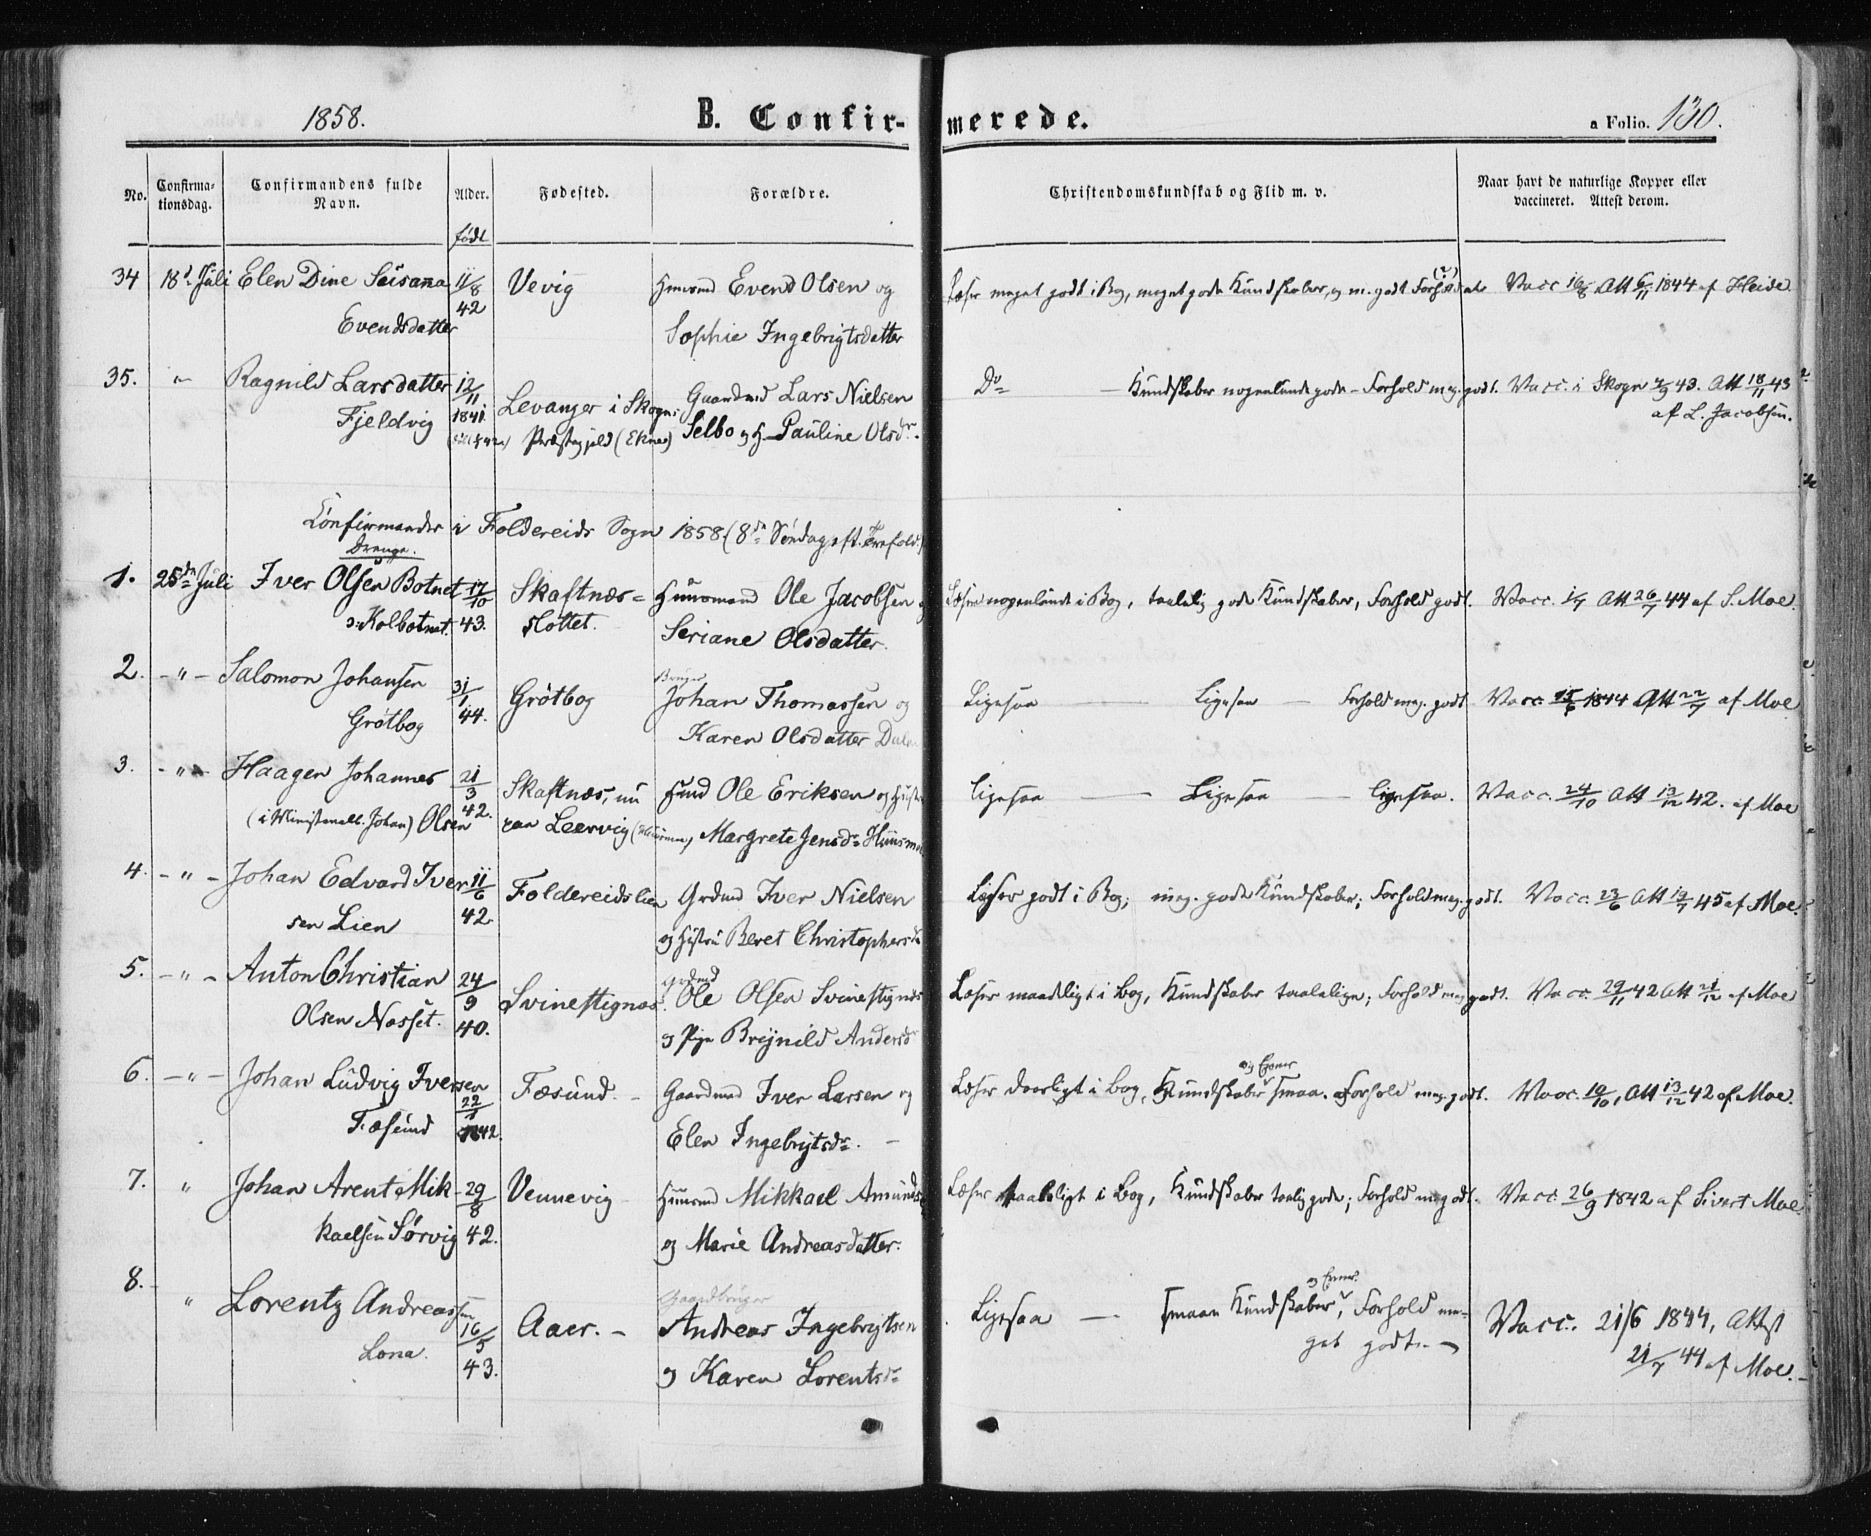 1858.
B. Confirmerede.
a Folio. 130.
No. Confirmationsdag. Confirmandens fulde Navn. Alder. Fødested. Forældre. Christendomskundskab og Flid m. v. Naar havt de naturlige Kopper eller vaccineret. Attest derom.
født
34 18de Juli Elen Dine Susanna 11/8 Vevig Huusmd Evend Olsen og Læser meget godt i Bog, meget gode Kundskaber, og m. godt Forhold Vacc 16/8 Att 6/11 1844 af Heide.
Evendsdatter 42 Sophie Ingebrigtsdatter
35. " Ragnild Larsdatter 12/11 Levanger i Skogns Gaardmd Lars Nielsen Do — Kundskaber nogenlunde gode - Forhold meg. godt. Vacc. i Skogn 2/9 43. Att 18/11 43
Fjeldvig 1841 Præstegjeld (Eknes) Selbo og H. Pauline Olsdr. af L. Jacobsen.
Confirmander i Foldereids Sogn 1858. (8de Søndag eft. Trefold.)
Drenge.
1. 25de Juli Iver Olsen Botnet 17/10 Skaftnæs= Huusmand Ole Jacobsen og Læser nogenlunde i Bog, taalelig gode Kundskaber, Forhold godt. Vacc. 1/7 Att 26/7 44 af S. Moe.
ɔ: Kolbotnet. 43. slottet. Seriane Olsdatter.
2. - " - Salomon Johansen 31/1 Grötbog Bruger Johan Thomassen og Ligesaa — Ligesaa — Forhold meg. godt Vacc 15/6 1844 Att 22/7 af Moe
Grötbog 44. Karen Olsdatter
3. - " - Haagen Johannes 21/3 Skaftnæs, nu Hmd Ole Eriksen og Hustru Ligesaa — Ligesaa — ligesaa. Vacc. 24/10 Att 13/12 42. af Moe
(i Ministerialb. Johan) Olsen 42. paa Leervig Margrete Jensdr
4. - " - Johan Edvard Iver- 11/6 Foldereidslien Grdmd Iver Nielsen Læser godt i Bog; meg. gode Kundskaber; Forhold meg. godt. Vacc. 23/6 Att 19/7 45 af Moe.
sen Lien 42 og Hustru Beret Christophersdr
5. - " - Anton Christian 24/9 Svinestignæs. Grdmd Ole Olsen Svinestignæs Læser maadeligt i Bog, Kundskaber taalelige; Forhold meg. godt. Vacc. 29/11 42 Att 21/12 af Moe
Olsen Næsset. 40. og Pige Brynild Andersdr
6. - " - Johan Ludvig Iversen 22/1 Fæsund. - Gaardmd Iver Larsen og Læser daarligt i Bog, Kundskaber og Evner smaa. Forhold meg. godt. Vacc. 10/10, Att 13/12 42 af Moe.
Fæsund 1842. Elen Ingebrigtsdr. -
7. " Johan Arent Mik- 29/8 Vennevig Huusmd Mikkael Amunds. Læser taaleligt i Bog, Kundskaber taalig gode; Forhold meg. godt. Vacc 26/9 1842 af Sivert Moe.
kaelsen Sørvig 42. og Marie Andreasdatter.
8. " Lorentz Andreassen 16/5 Aaer. - Gaardbruger Andreas Ingebrigtsen Ligesaa — smaae Kundskaber og Evner, Forhold me- Vacc. 21/6 1844, Attest
Lona. 43. og Karen Lorentsdr get godt. - 21/7 44 af Moe.-